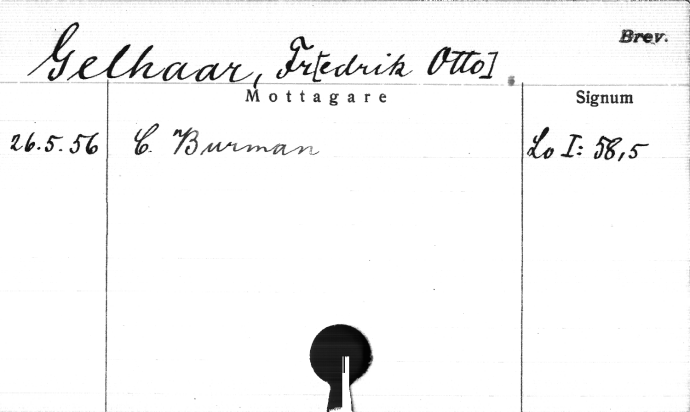 Brev.
Gelhaar, Fr[edrik Otto].
Mottagare Signum
26.5.56 C. Burman Lo I: 58,5